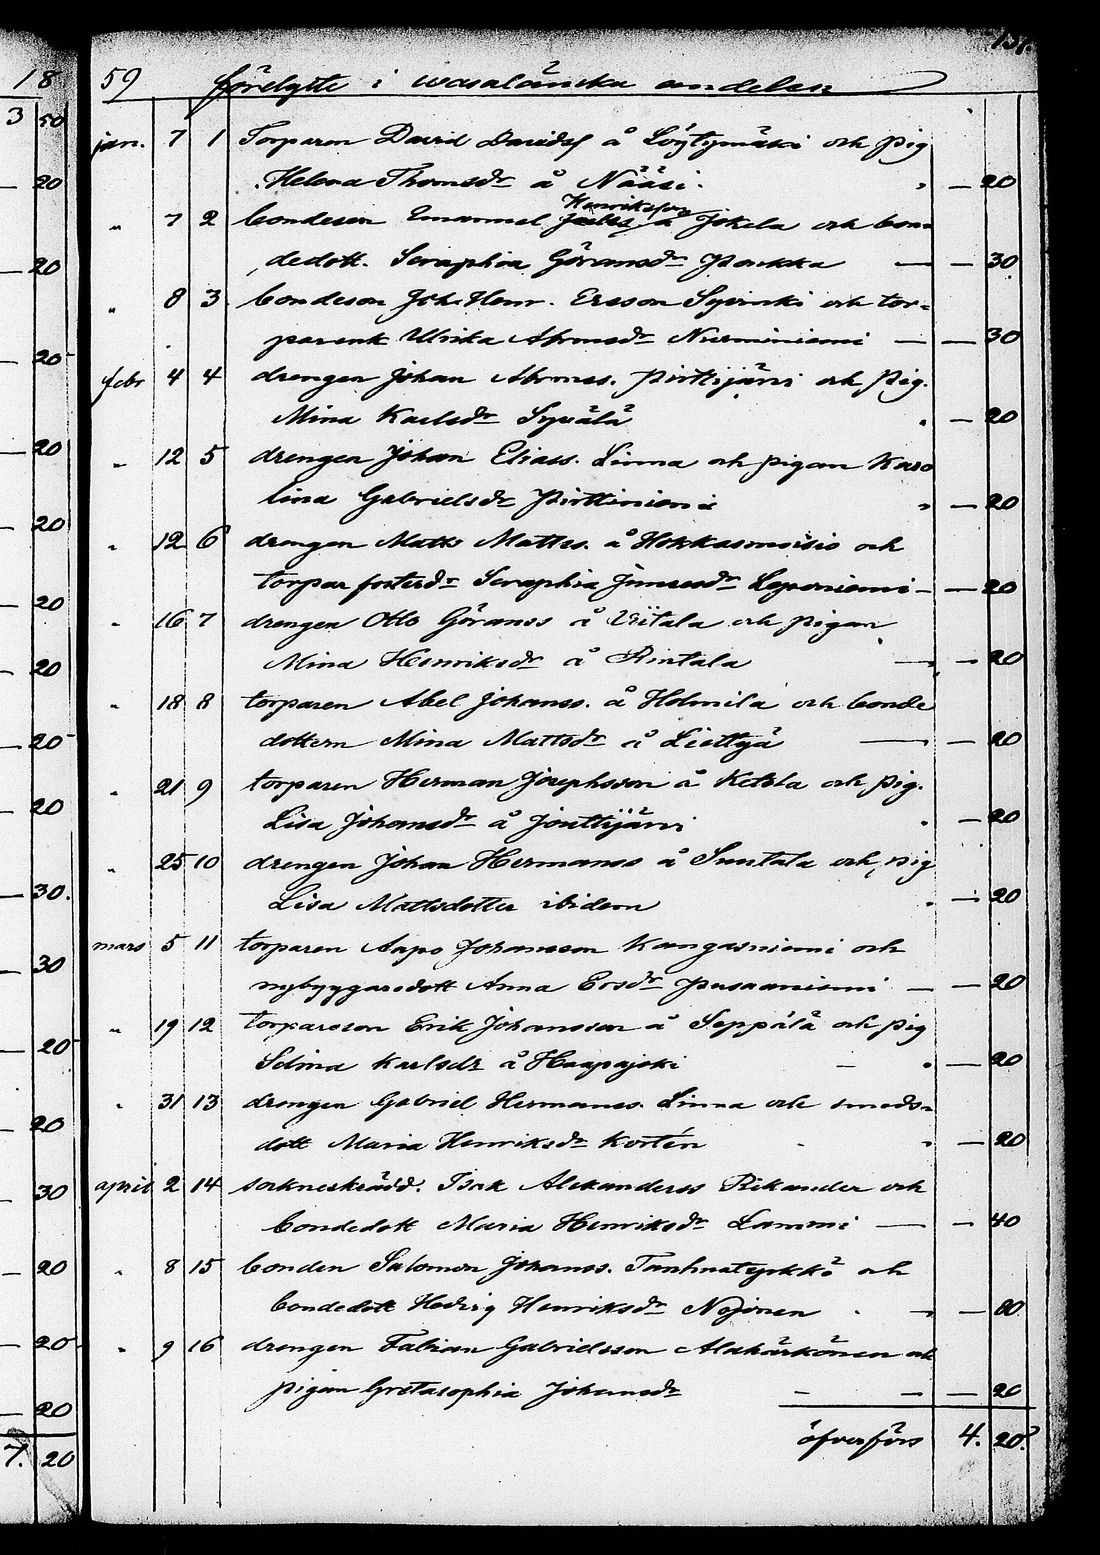 157.
18 59 förelyste i wasalänska andelen
jan. 7 1 Torparen David Davidss å Löytymäki och pig
Helena Thomsdr å Nääsi. — 20
" 7 2 bondeson Emanuel Henriksson å Jokela och bon-
dedott. Seraphia Göransdr Paukka — — 30
" 8 3 bondeson Joh. Henr. Ersson Syvinki och tor-
parenk Ulrika Abrmsdr Nurminiemi — — 30
febr 4 4 drengen Johan Abrmss. Pirttijärvi och pig.
Mina Karlsdr Sypälä — 20
" 12 5 drengen Johan Eliass. Linna och pigan Karo
lina Gabrielsdr Pirttiniemi — 20
" 12 6 drengen Matts Mattss. å Hokkasmoisio och
torpar fosterdr Seraphia Leponiemi — — 20
" 16 7 drengen Otto Göranss å Viitala och pigan
Mina Henriksdr å Rintala — — 20
" 18 8 torparen Abel Johanss. å Holmila och bonde
dottern Mina Mattsdr å Liettyä — — 20
" 21 9 torparen Herman Josephsson å Ketola och pig.
Lisa Johansdr å Jouttijärvi — 20
" 25 10 drengen Johan Hermanss å Suutala och pig
Lisa Mattsdotter ibidem — 20
mars 5 11 torparen Aapo Johansson Kangasniemi och
nybyggaredott Anna Ersdr Pusaaniemi — — 20
" 19 12 torpareson Erik Johansson å Seppälä och pig
Selina Karlsdr å Haapajoki — — 20
" 31 13 drengen Gabriel Hermanss. Linna och smeds-
dott Maria Henriksdr Kortén — 20
april 2 14 sokneskrädd. Isak Alexanderss Rikander och
bondedott Maria Henriksdr Lammi — — 40
" 8 15 bonden Salomon Johanss. Tanhuatyrkkö och
bondedott Hedvig Henriksdr Nojonen — 80
" 9 16 drengen Fabian Gabrielsson Alahärkönen och
pigan Gretasophia Johansdr — — — 20
öfverförs 4. 20